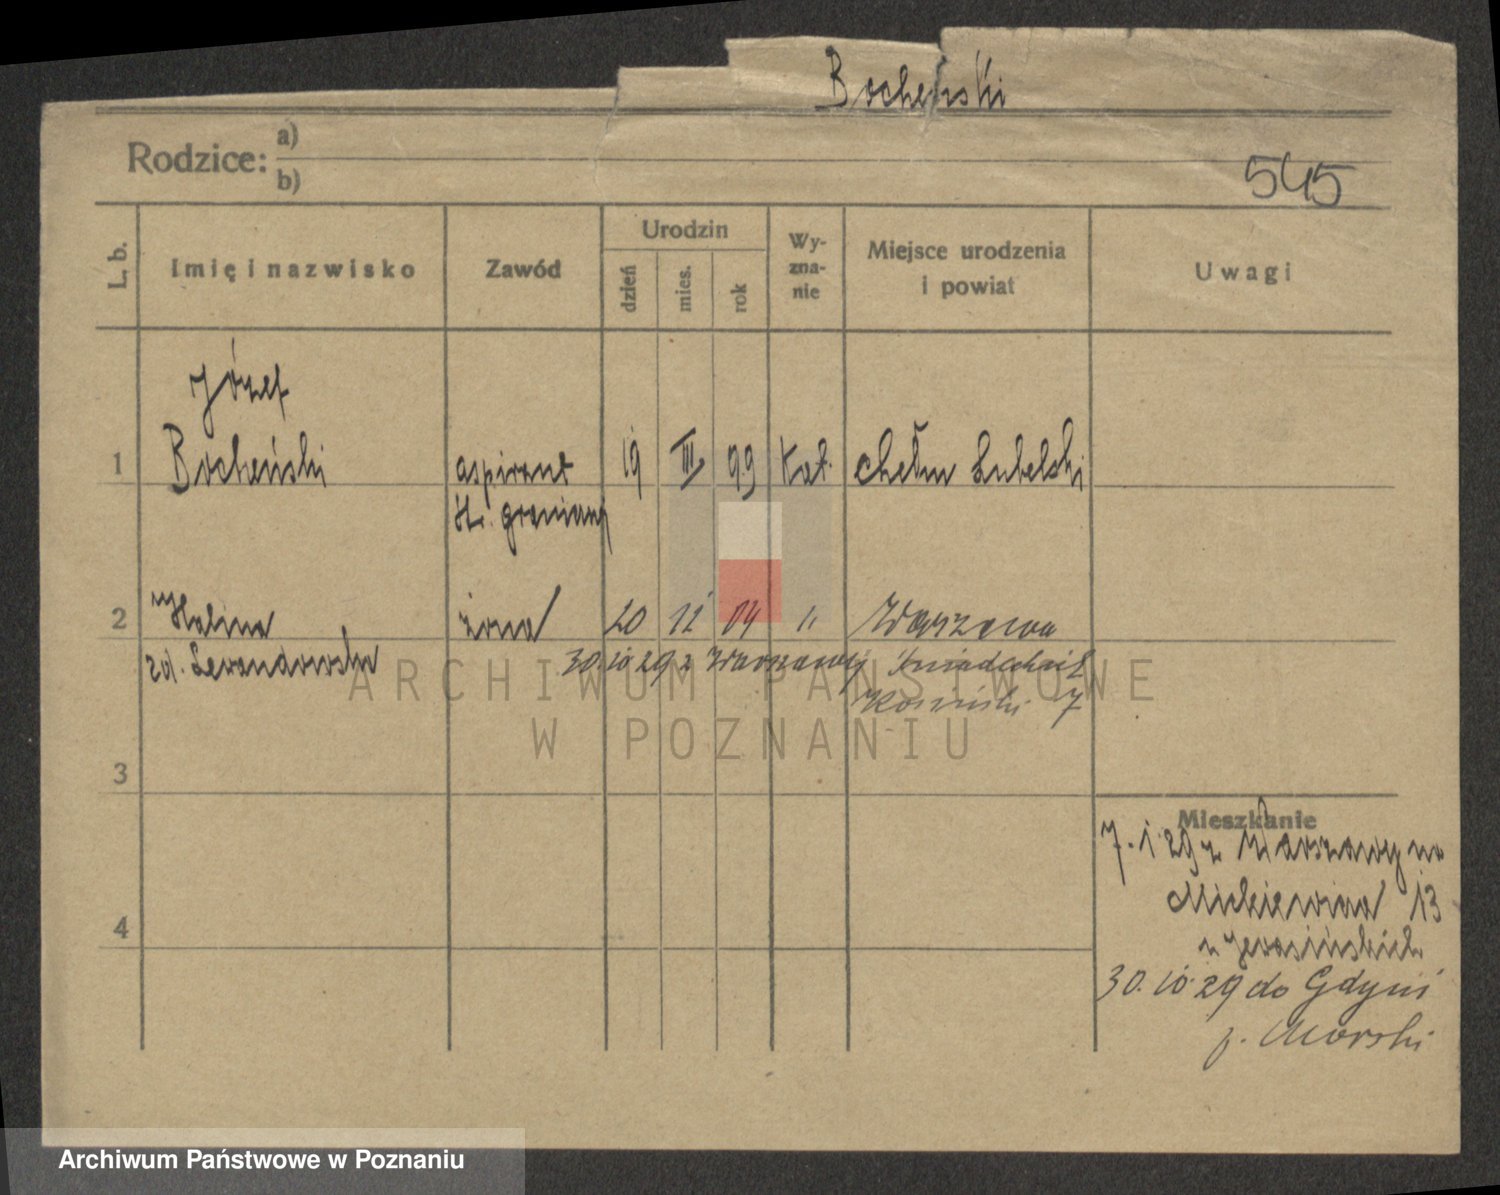 Bocheński
Rodzice: a)
b)
545
L. b.
Imię i nazwisko
Zawód
Urodzin
dzień
mies.
rok
Wy-
zna-
nie
Miejsce urodzenia
i powiat
Uwagi
Józef
1 Bocheński aspirant 19 III 99 Kat. Chełm Lubelski
st. granicznej
2 Halina żona 20 12 04 " Warszawa
zd. Lewandowska 30.10 29 z Warszawy
7
ARCHIWUM PAŃSTWOWE
W POZNANIU
3
Mieszkanie
7. 1 29 z Warszawy na
Mickiewicza 13
4
30. 10. 29 do Gdyni
p. Morski
Archiwum Państwowe w Poznaniu